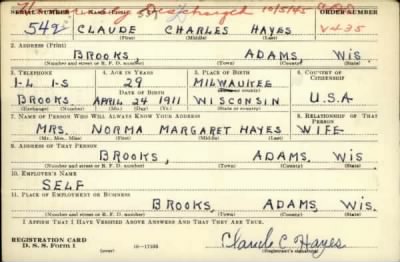 Discharged 10/5/45
SERIAL NUMBER 1. NAME (Print) ORDER NUMBER
549 CLAUDE CHARLES HAYES V435
(First) (Middle) (Last)
2. ADDRESS (Print)
BROOKS ADAMS, WIS.
(Number and street or R. F. D. number) (Town) (County) (State)
3. TELEPHONE 4. AGE IN YEARS 5. PLACE OF BIRTH 6. COUNTRY OF CITIZENSHIP
1-L 1-S 29 MILWAUKEE
BROOKS APRIL 24 1911 WISCONSIN U.S.A
(Exchange) (Number) (Mo.) (Day) (Yr.) (State or country)
7. NAME OF PERSON WHO WILL ALWAYS KNOW YOUR ADDRESS 8. RELATIONSHIP OF THAT PERSON
MRS. NORMA MARGARET HAYES WIFE
(Mr., Mrs., Miss) (First) (Middle) (Last)
9. ADDRESS OF THAT PERSON
BROOKS, ADAMS, WIS
(Number and street or R. F. D. number) (Town) (County) (State)
10. EMPLOYER'S NAME
SELF
11. PLACE OF EMPLOYMENT OR BUSINESS
BROOKS, ADAMS, WIS.
(Number and street or R. F. D. number) (Town) (County) (State)
I AFFIRM THAT I HAVE VERIFIED ABOVE ANSWERS AND THAT THEY ARE TRUE.
REGISTRATION CARD
D. S. S. Form 1 16-17105 Claude C Hayes
(Registrant's signature)